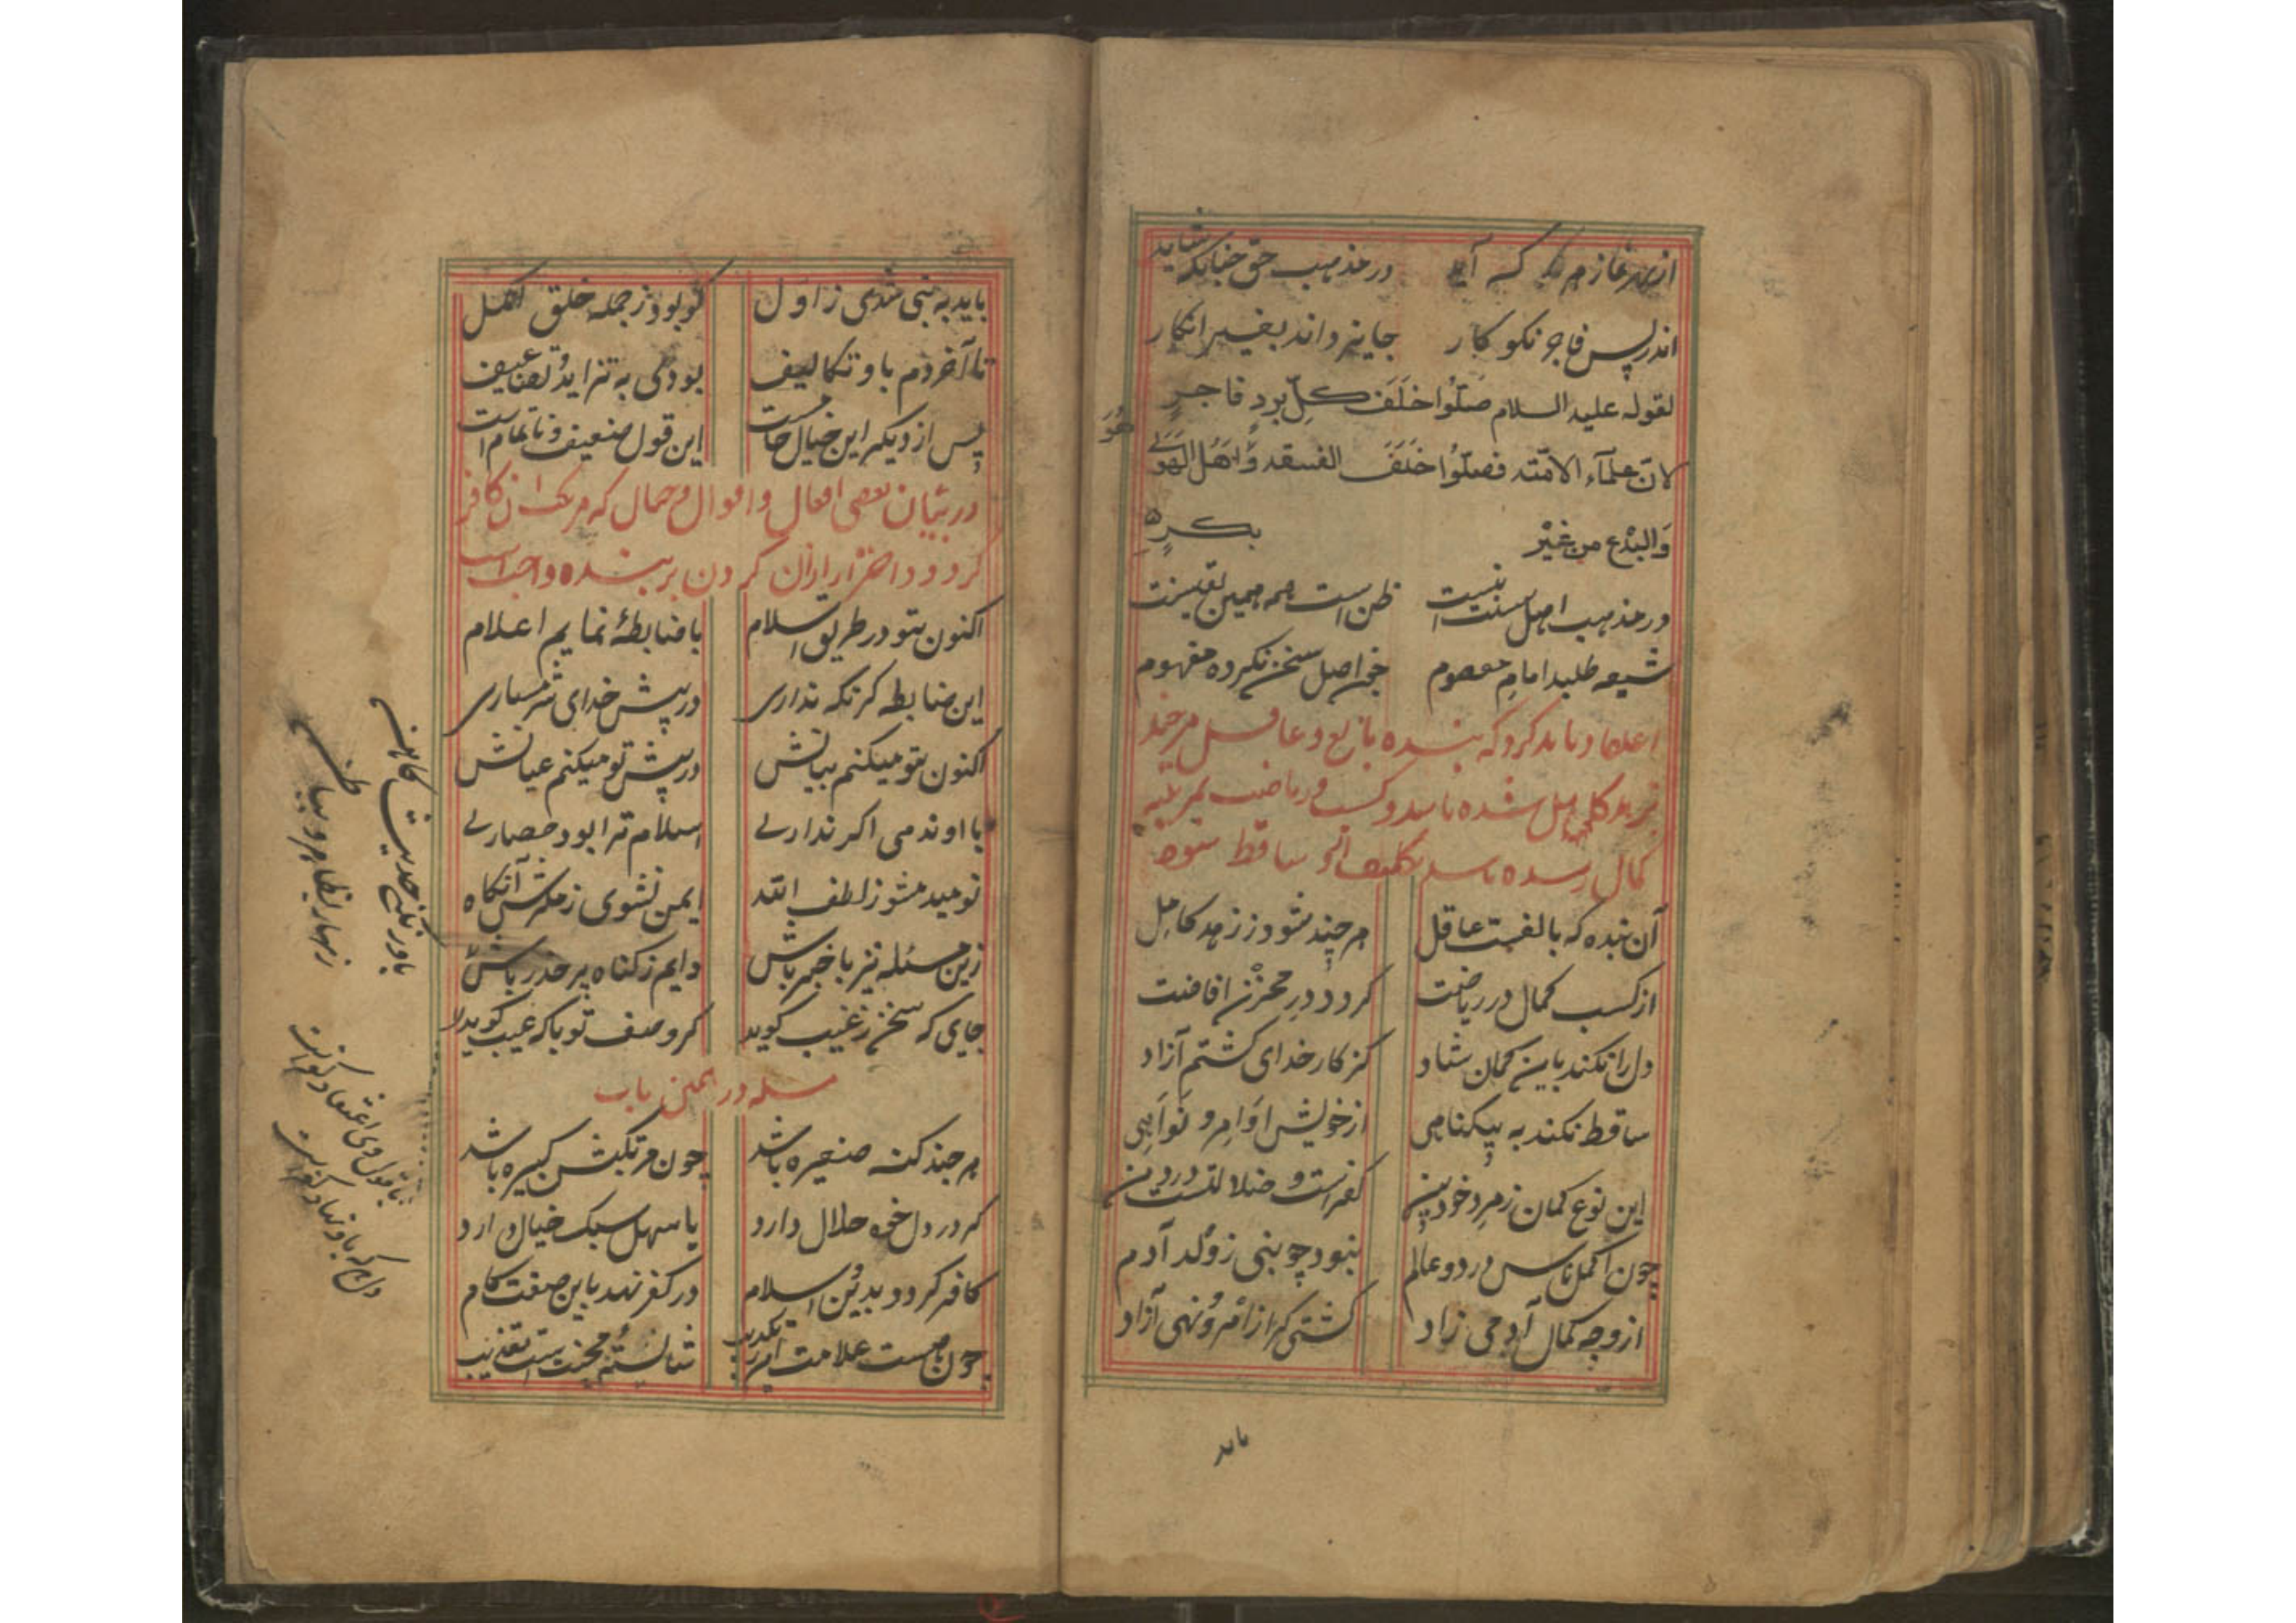 از بهر نماز هر که آید در مذهب حق چنانکه شاید
اندر پس فاجر نکو کار جایز داند بغیر انکار
لقوله علیه السلام صَلّوُا خَلَفَ کلِّ برٍ و فاجرٍ
لانّ علمآء الامّته فصلّوُا خَلَفَ الفسقه وَاهَلُ الَهَوَیَ
هُوَ
وَالبدْع من غیْر بکرٍ
در مذهب اهل سنت اینست ظن است همه همین یقینست
شیعه طلبد امامِ معصوم خجن اصل سخن نکرده مفهوم
اعتقاد باید کرد که بنده بالغ و عاقل هرچند
در زهد کامل شده باشد و کسب و ریاضت بمرتبه
کمال رسیده باشد تکلیف ازو ساقط نشود
آن بنده که بالغست عاقل هر چند شود ز زهد کامل
از کسب کمال در ریاضت کردد درِ مخزن افاضت
دل را نکند باین کمان شاد کز کار خدای کشتم آزاد
ساقط نکند به پیکناهی از خویش اوَامِر و نَوَاهِی
این نوع کمان ز مرد خود بین کفر است و ضلالتست در دین
چون اکمل ناس در دو عالم نبود چو بنی ز وُلد آدم
از وجه کمال آدمی زاد کشتی کر از امْر و نَهی آزاد
باید
باید به نبی شدی ز اول کو بود ز جمله خلق اکمل
تا آخر دم باو تکالیف بودی به تزاید و تضاعیف
پس از دیگر این خیال خامست این قول ضعیف و ناتمام است
در بیان بعضی افعال و اقوال و خیال که مرتکب آن کافر
کردد و احتراز از ان کردن بر بنده واجب است
اکنون بتو در طریق اسلام با ضابطهٔ نمایم اعلام
این ضابطه کر نکه نداری در پیش خدای شرمساری
اکنون بتو میکنم بیانش در پیش تو میکنم عیانش
با او ندمی اکر ندارے اسلام ترا بود حصارے
نومید مشو ز لطف الله ایمن نشوی ز مکرش آنکاه
زین مسئله نیز با خبر باش دایم ز کناه پر حذر باش
جای که سخن ز غیب کوید کر وصف تو یا که عیب کوید
مسله در همین باب
هر چند کنه صغیره باشد چون مرتکبش کبیره باشد
کر در دل خود حلال دارد یا سهل سبک خیال دارد
کافر کردد بدین اسلام در کفر نهد باین صفت کام
چون هست علامت
باور نکنی حدیث کاهن
زنهار بظاهر و بباطن